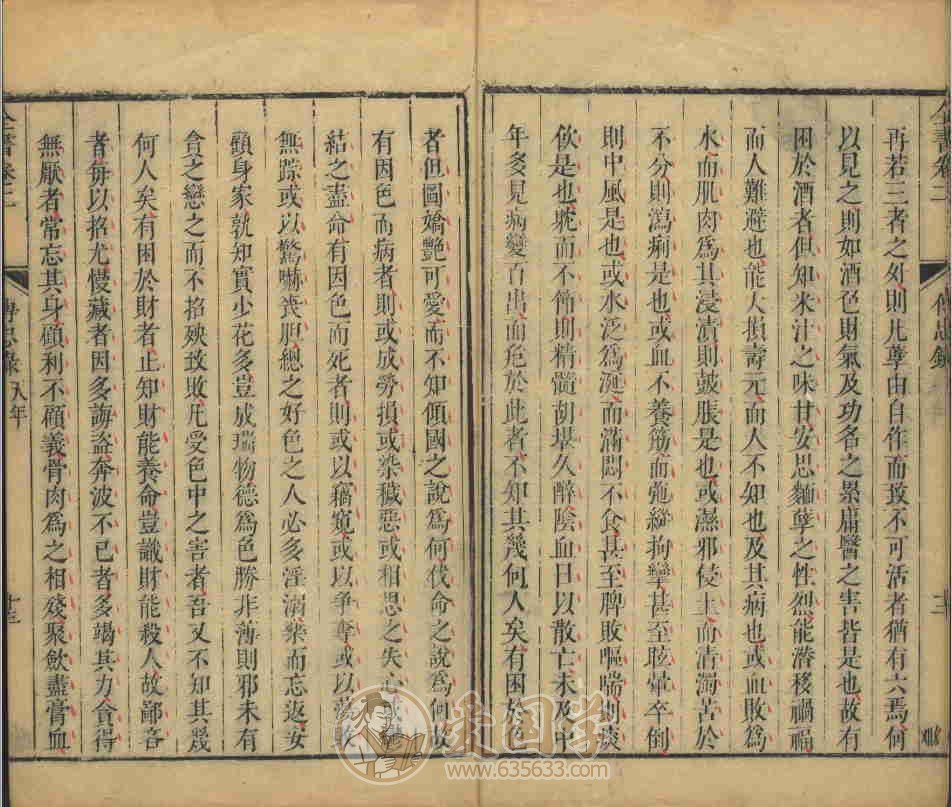 再若三者之外則凡孽由自作而致不可活者猶有六焉何
以見之則如酒色財氣及功名之累庸醫之害皆是也故有
困於酒者但知米汁之味甘安思麯孽之性烈能潛移禍福
而人難避也能大損壽元而人不知也及其病也或血敗為
水而肌肉為其浸漬則鼓脹是也或濕邪侵土而清濁苦於
不分則瀉痢是也或血不養筋而弛縱拘攣甚至眩暈卒倒
則中風是也或水泛為涎而滿悶不食甚至脾敗嘔喘則痰
飲是也耽而不節則精髓胡堪久醉陰血日以散亡未及中
年多見病變百出而危於此者不知其幾何人矣有困於色
者但圖嬌艷可愛而不知傾國之說為何伐命之說為何故
有因色而病者則或成勞損或染穢惡或相思之失心或鬱
結之盡命有因色而死者則或以竊窺或以爭奪或以蕩敗
無踪或以驚嚇喪胆總之好色之人必多淫溺樂而忘返安
顧身家孰知實少花多豈成瑞物德為色勝非薄則邪未有
貪之戀之而不招殃致敗凡受色中之害者吾又不知其幾
何人矣有困於財者止知財能養命豈識財能殺人故鄙吝
者每以招尤慢藏者因多誨盜奔波不已者多竭其力貪得
無厭者常忘其身顧利不顧義骨肉為之相殘聚斂盡膏血
全書卷之二
傳忠錄
八年
十三
www.635633.com